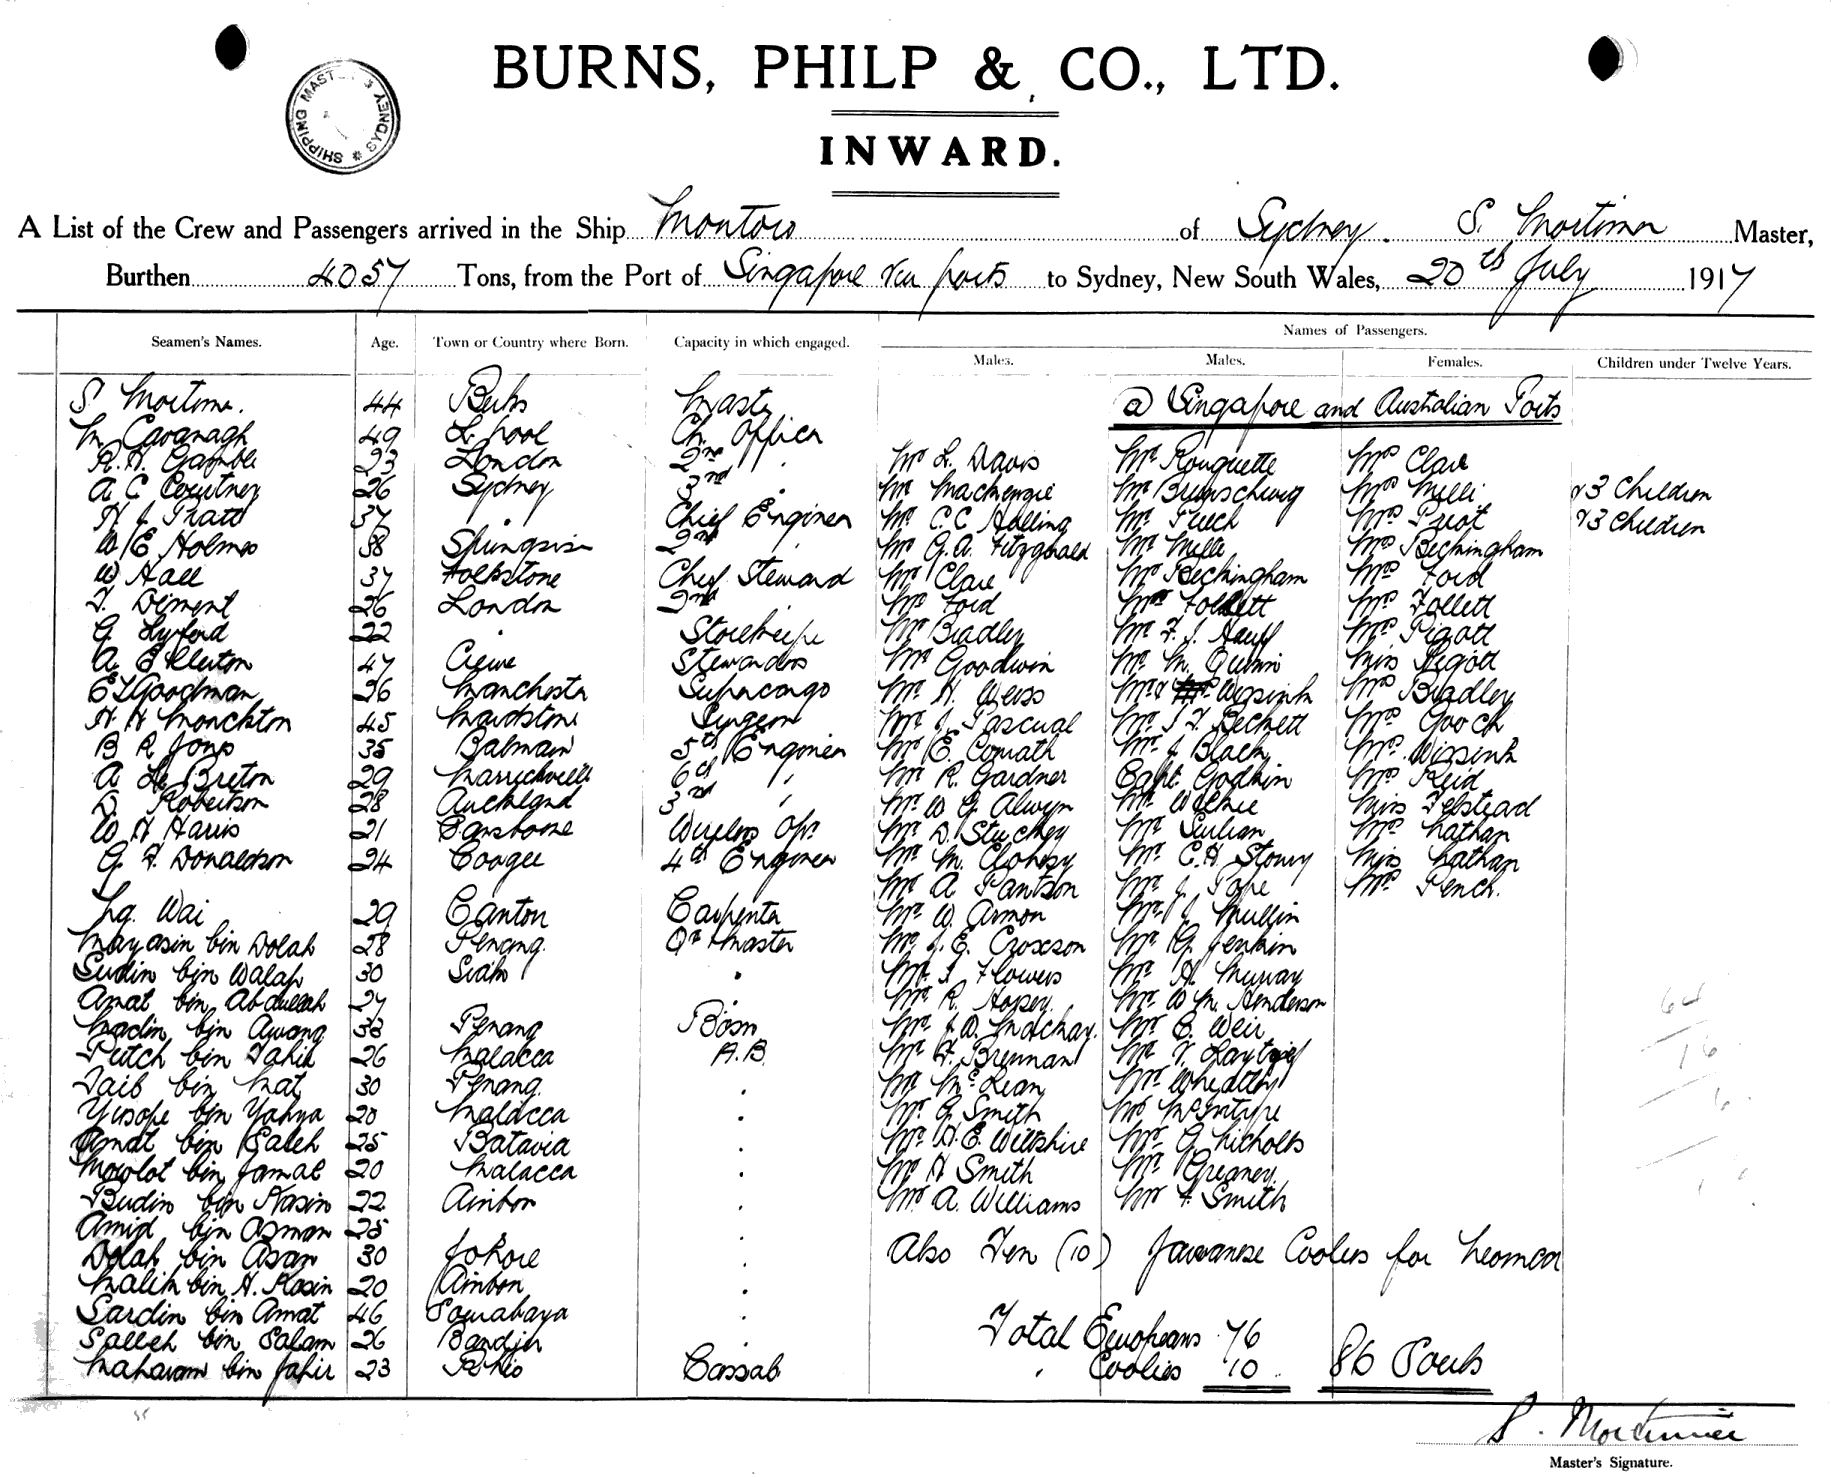 BURNS, PHILP & CO., LTD.
SHIPPING MASTER SYDNEY
INWARD.
A List of the Crew and Passengers arrived in the Ship Montoro of Sydney. S. Mortimer Master,
Burthen 4057 Tons, from the Port of Singapore via ports to Sydney, New South Wales, 20th July 1917
Names of Passengers.
Seamen's Names. Age. Town or Country where Born. Capacity in which engaged. Males. Males. Females. Children under Twelve Years.
S Mortimer. 44 Berks Master @ Singapore and Australian Ports
M. Cavanagh 49 L'pool Ch. Officer
R. H. Gamble 23 London 2nd " Mr L. Davis Mr Rouquette Mrs Clare
A C Courtney 26 Sydney 3rd " Mr Mackenzie Mr Brunschwig Mrs Milli & 3 Children
H J Pratt 37 " Chief Engineer Mr C. C Halling Mr Puech Mrs & 3 Children
W E Holmes 38 2nd " Mr G. A. Fitzgerald Mr Mrs Beckingham
W Hall 37 Folkstone Chief Steward Mr Clare Mr Beckingham Mrs Ford
T. Diment 26 London 2nd Mr Ford Mr Follett Mrs Follett
G Lyford 22 " Storekeeper Mr Bradley Mr F. J. Mrs Pigott
A Ellerton 47 Crewe Stewardess Mr Goodwin Mr M. Quinn Miss Pigott
E L Goodman 26 Manchester Supercargo Mr H Weiss Mr Wissink Mrs Bradley
H H Monckton 45 Maidstone Surgeon Mr J. Pascual Mr Beckett Mrs Gooch
B R Jones 35 Balmain 5th Engineer Mr E. Comath Mr J Black Mrs Wissink
A Le Breton 29 Marrickville 6th " Mr R. Gardner Capt. Godkin Mrs Reid
D Robertson 28 Auckland 3rd " Mr W G Alwyn Mr Wilkie Miss Felstead
W H Harris 21 Wireless Opr. Mr D. Stuckey Mr Mrs Nathan
G. F. Donaldson 24 Coogee 4th Engineer Mr M. Clohesy Mr C. H Stowry Miss Nathan
Mr A Pantson Mr J. Pope Mrs Pench.
Wai 29 Canton Carpenter Mr W. Armon Mr J. Mullin
Mayasin bin Dolah 28 Penang. Qr Master Mr J. E. Croxson Mr G. Jenkin
Sudin bin Walap 30 Siam " Mr J Flowers Mr H. Murray
Amat bin Abdullah 27 " " Mr R. Hopsey. Mr W M. Henderson
Madin bin Awang 38 Penang Bosn Mr J. D. Mackay. Mr C. Weir
Putch bin Tahir 26 Malacca A.B. Mr F. Brennan Mr
Taib bin Mat 30 Penang. " Mr McLean Mr Wheatley
Yusope bin Yahya 20 Malacca " Mr G. Smith Mr McIntyre
Amat bin Saleh 25 Batavia " Mr H. E. Wiltshire Mr G. Nicholls
Mowlot bin Jamal 20 Malacca " Mr H Smith Mr Greaney.
Budin bin Kasin 22 Ambon " Mr A. Williams Mr F. Smith
Amid bin Osman 25 " "
Dolah bin Asan 30 Johore " Also Ten (10) Javanese Coolies for Noumea
Malik bin H. Kasin 20 Ambon "
Sardin bin Amat 46 Sourabaya " Total Europeans 76
Salleh bin Salam 26 "
Maharam bin Jahir 23 Rhio Cassab " Coolies 10. 86 Souls
S. Mortimer
Master's Signature.